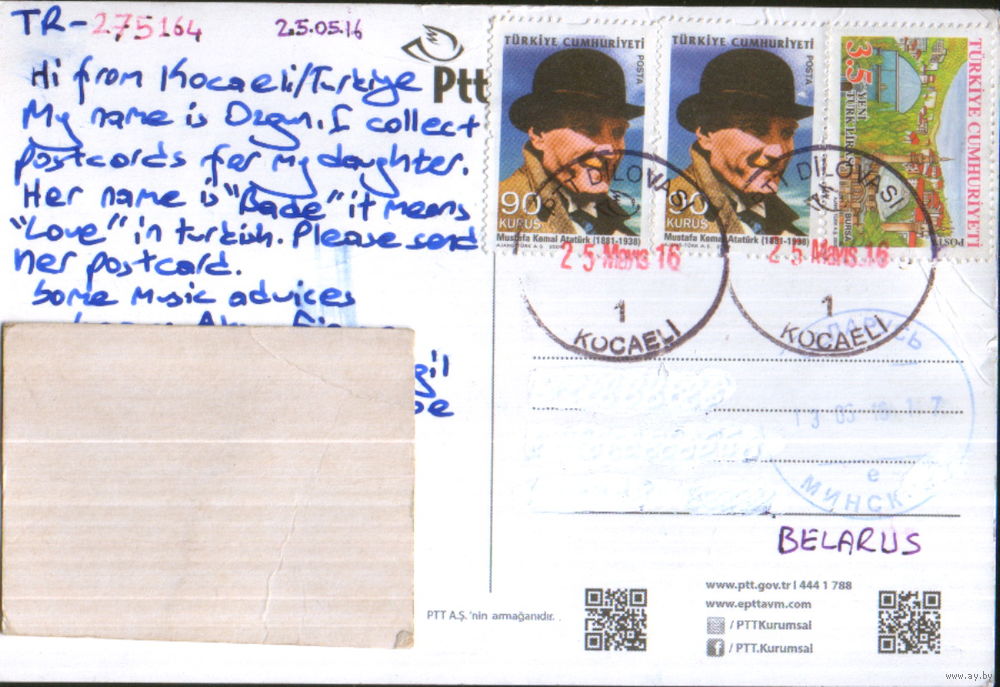 TR-275164 25.05.16
Hi from Kocaeli/Turkiye
My name is Ozgun. I collect
postcards for my daughter.
Her name is "Bade" it means
"Love" in turkish. Please send
her postcard.
Some Music advices
Ptt
TÜRKİYE CUMHURİYETİ
POSTA
90
KURUŞ
Mustafa Kemal Atatürk (1881-1938)
TÜRKİYE CUMHURİYETİ
POSTA
90
KURUŞ
Mustafa Kemal Atatürk (1881-1938)
TÜRKİYE CUMHURİYETİ
3.5 YENİ TÜRK LİRASI
BURSA
PTT DİLOVASI
25 Mayıs 16
1
KOCAELİ
PTT DİLOVASI
25 Mayıs 16
1
KOCAELİ
е
МИНСК
BELARUS
PTT A.Ş. 'nin armağanıdır.
www.ptt.gov.tr I 444 1 788
www.epttavm.com
/PTTKurumsal
/PTT.Kurumsal
www.ay.by